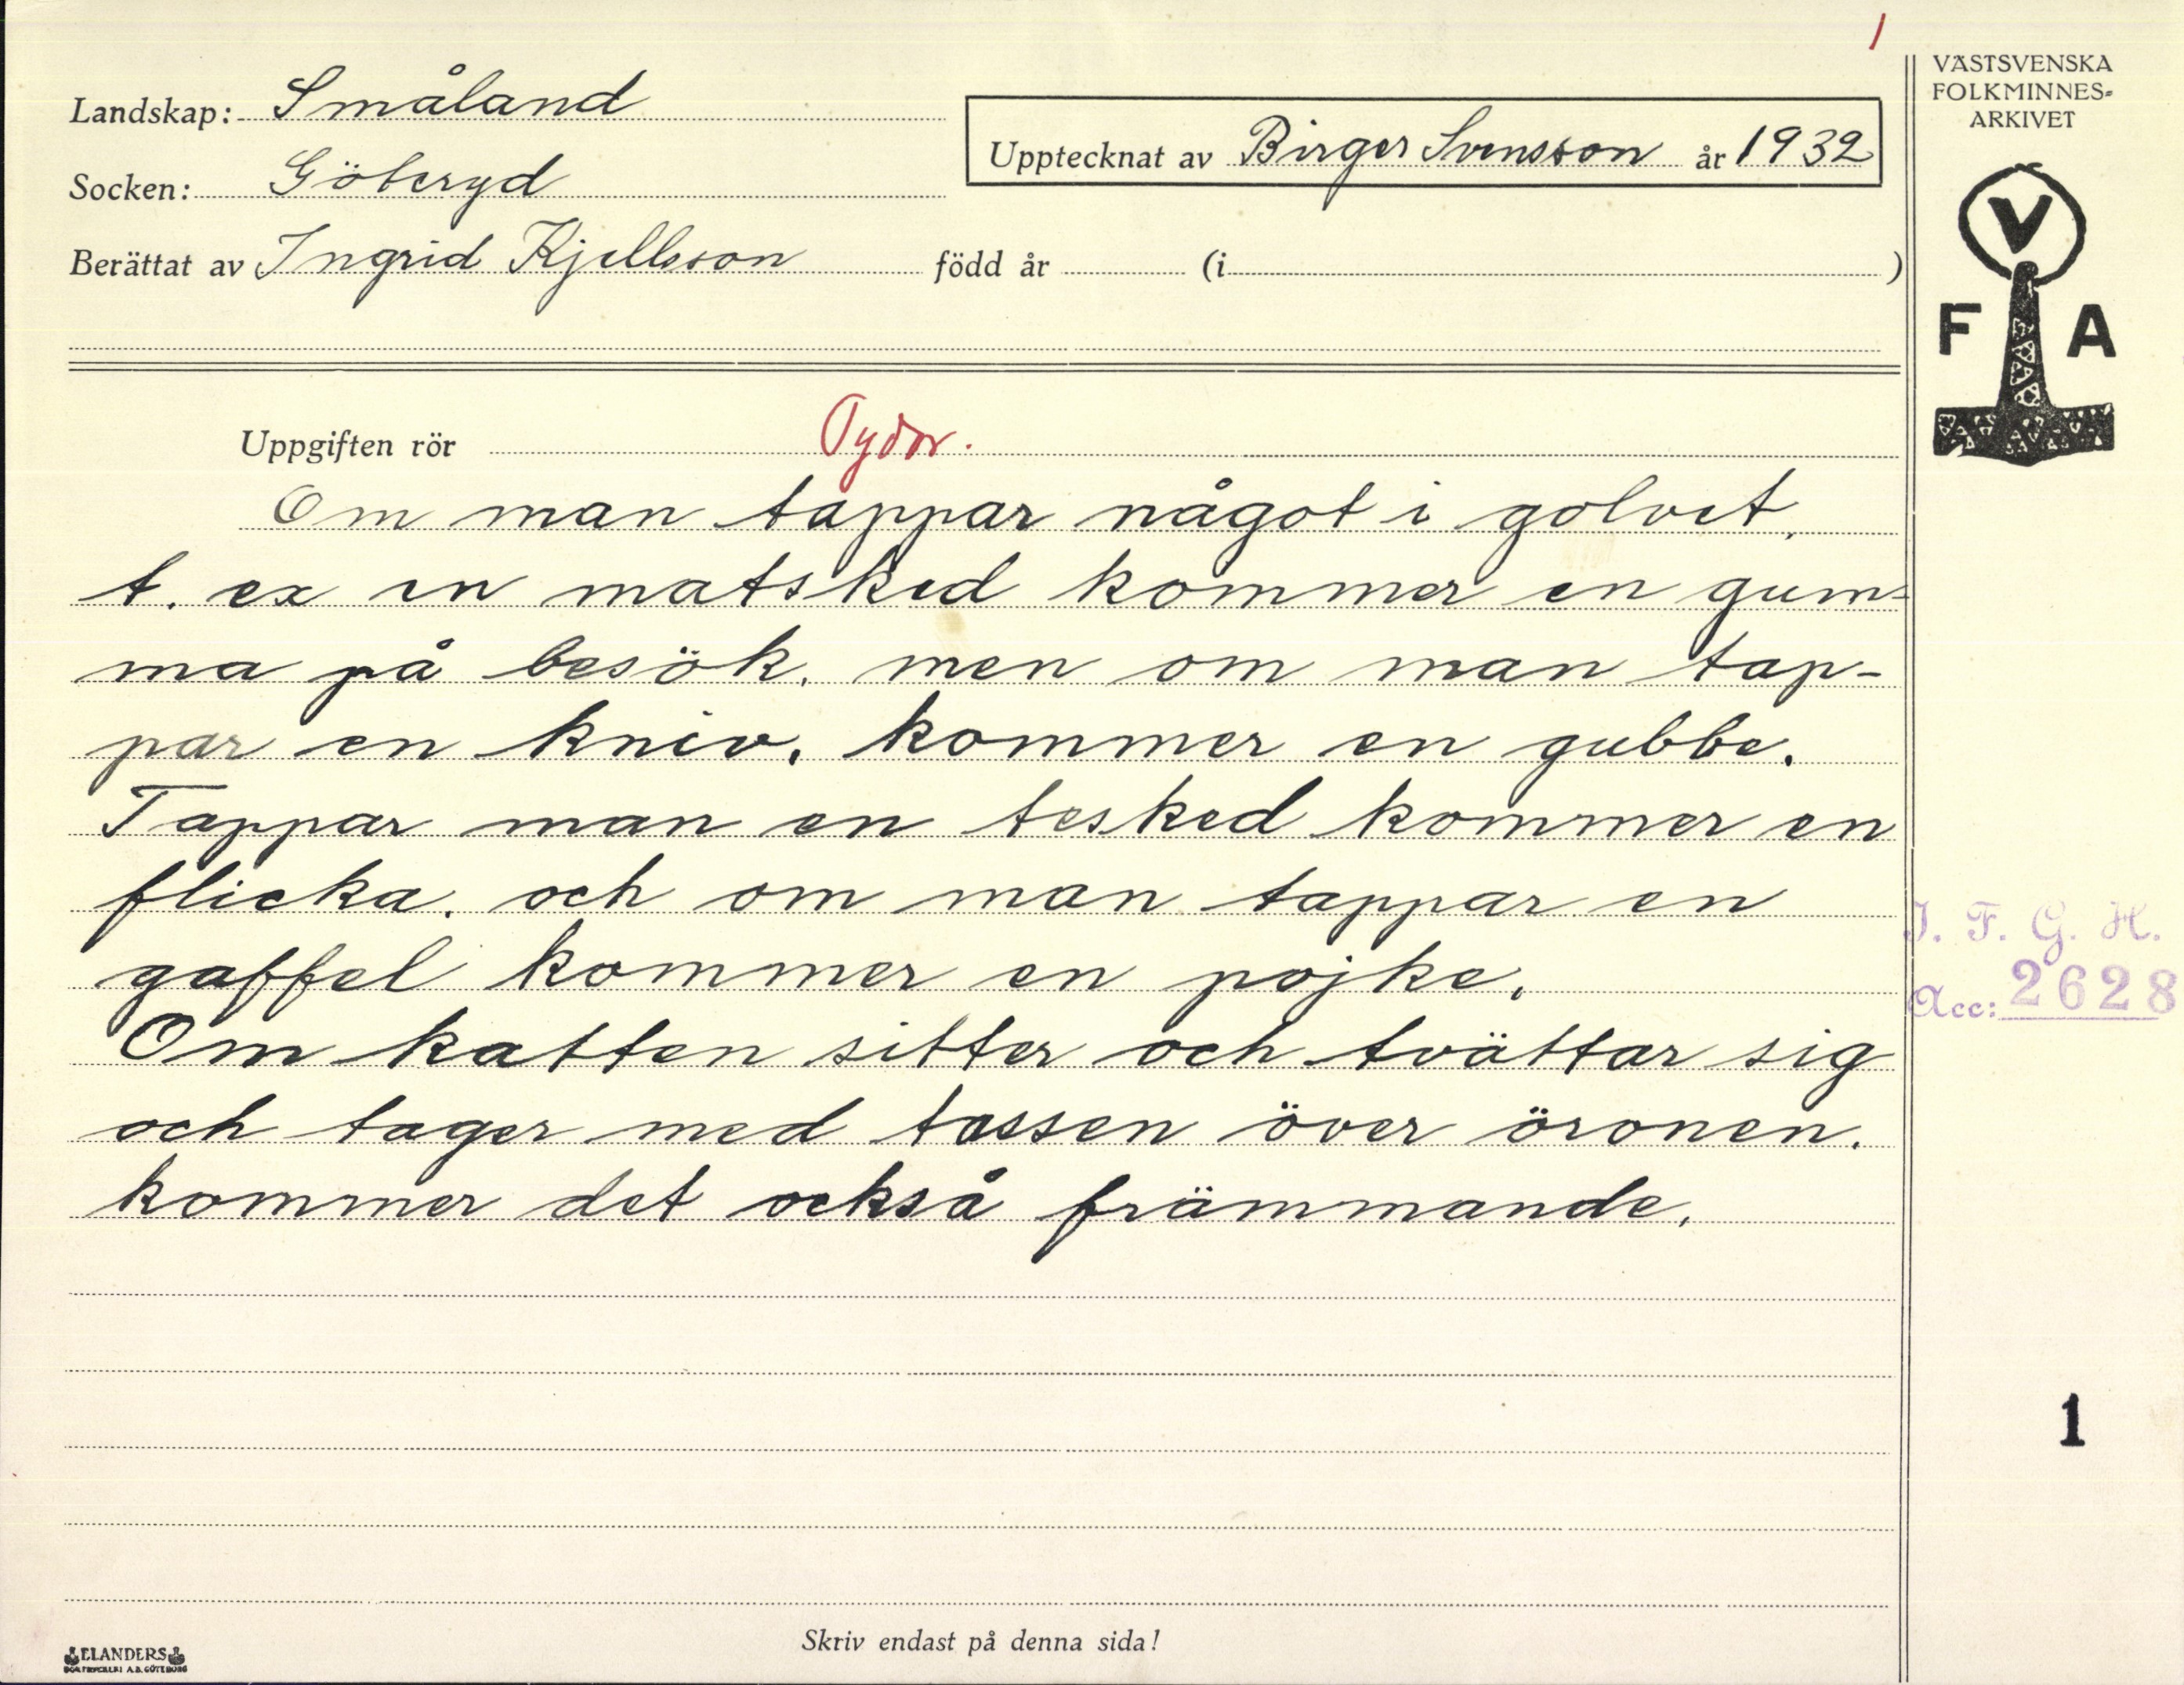 1
Landskap: Småland
Socken: Göteryd
Berättat av Ingrid Kjellsson född år (i )
Upptecknat av Birger Svensson år 1932
VÄSTSVENSKA
FOLKMINNES-
ARKIVET
V
F A
Uppgiften rör Tydor.
Om man tappar något i golvet,
t. ex en matsked kommer en gum-
ma på besök. men om man tap-
par en kniv, kommer en gubbe.
Tappar man en tesked kommer en
flicka. och om man tappar en
gaffel kommer en pojke.
Om katten sitter och tvättar sig
och tager med tassen över öronen.
kommer det också främmande.
I. F. G. H.
Acc: 2628
1
Skriv endast på denna sida!
ELANDERS
BOKTRYCKERI A.B. GÖTEBORG